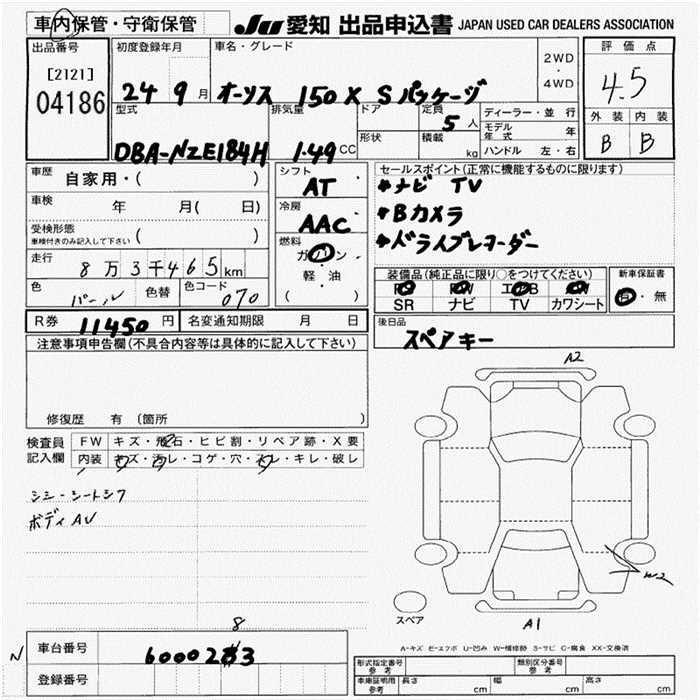 車内保管・守衛保管
JU 愛知 出品申込書 JAPAN USED CAR DEALERS ASSOCIATION
出品番号
[2121]
04186
初度登録年月
24 9月
車名・グレード
オーリス 150X Sパッケージ
2WD
・
4WD
評価点
4.5
外装 内装
B B
型式
DBA-NZE184H
排気量
1.49 CC
ドア
形状
定員
5 人
積載
kg
ディーラー・並行
モデル年式 年
ハンドル 左・右
車歴
自家用・( )
車検
年 月( 日)
受検形態
車検付きのみ記入して下さい ( )
走行
8万3千465km
色
パール
色替
色コード
070
シフト
AT
冷房
AAC
燃料
ガソリン
・
軽・油
( )
セールスポイント(正常に機能するものに限ります)
*ナビ TV
*Bカメラ
*ドライブレコーダー
装備品(純正品に限り○をつけてください)
SR ナビ TV カワシート
新車保証書
有・無
R券 11450円
名変通知期限 月 日
後日品
スペアキー
注意事項申告欄(不具合内容等は具体的に記入して下さい)
修復歴 有 〔箇所 〕
検査員
記入欄
FW キズ・飛石・ヒビ割・リペア跡・X要
内装 キズ・汚レ・コゲ・穴・スレ・キレ・破レ
ボディAU
A2
W2
スペア
A1
A-キズ E-エクボ U-凹み W-補修跡 S-サビ C-腐食 XX-交換済
N
車台番号
8
6000283
登録番号
形式指定番号
参考
類別区分番号
参考
車庫証明用
参考
長さ cm
幅 cm
高さ cm